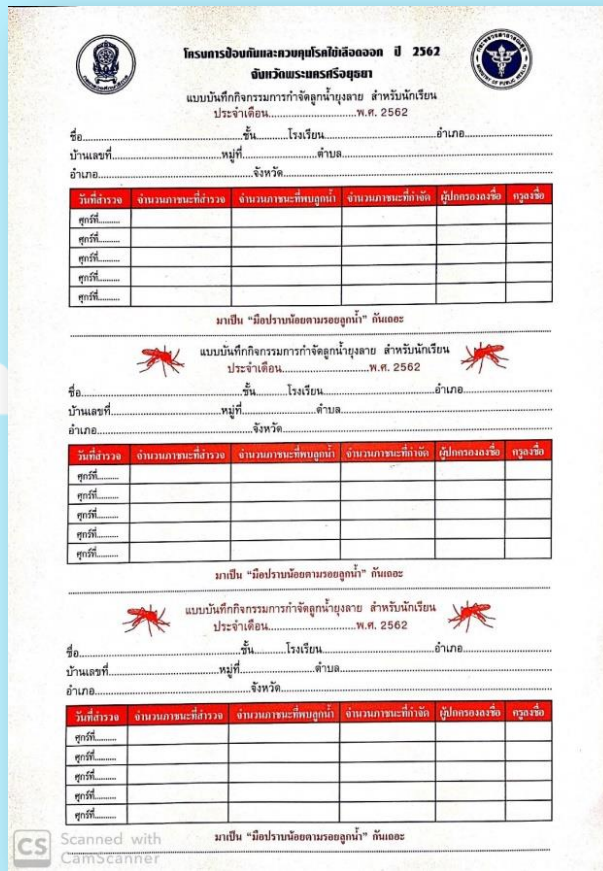 โครงการป้องกันและควบคุมโรคไข้เลือดออก ปี 2562
จังหวัดพระนครศรีอยุธยา
แบบบันทึกกิจกรรมการกำจัดลูกน้ำยุงลาย สำหรับนักเรียน
ประจำเดือน....................พ.ศ. 2562
ชื่อ....................ชั้น..........โรงเรียน....................อำเภอ....................
บ้านเลขที่....................หมู่ที่....................ตำบล....................
อำเภอ....................จังหวัด....................
วันที่สำรวจ จำนวนภาชนะที่สำรวจ จำนวนภาชนะที่พบลูกน้ำ จำนวนภาชนะที่กำจัด ผู้ปกครองลงชื่อ ครูลงชื่อ
ศุกร์ที่.........
ศุกร์ที่.........
ศุกร์ที่.........
ศุกร์ที่.........
ศุกร์ที่.........
มาเป็น “มือปราบน้อยตามรอยลูกน้ำ” กันเถอะ
แบบบันทึกกิจกรรมการกำจัดลูกน้ำยุงลาย สำหรับนักเรียน
ประจำเดือน....................พ.ศ. 2562
ชื่อ....................ชั้น..........โรงเรียน....................อำเภอ....................
บ้านเลขที่....................หมู่ที่....................ตำบล....................
อำเภอ....................จังหวัด....................
วันที่สำรวจ จำนวนภาชนะที่สำรวจ จำนวนภาชนะที่พบลูกน้ำ จำนวนภาชนะที่กำจัด ผู้ปกครองลงชื่อ ครูลงชื่อ
ศุกร์ที่.........
ศุกร์ที่.........
ศุกร์ที่.........
ศุกร์ที่.........
ศุกร์ที่.........
มาเป็น “มือปราบน้อยตามรอยลูกน้ำ” กันเถอะ
แบบบันทึกกิจกรรมการกำจัดลูกน้ำยุงลาย สำหรับนักเรียน
ประจำเดือน....................พ.ศ. 2562
ชื่อ....................ชั้น..........โรงเรียน....................อำเภอ....................
บ้านเลขที่....................หมู่ที่....................ตำบล....................
อำเภอ....................จังหวัด....................
วันที่สำรวจ จำนวนภาชนะที่สำรวจ จำนวนภาชนะที่พบลูกน้ำ จำนวนภาชนะที่กำจัด ผู้ปกครองลงชื่อ ครูลงชื่อ
ศุกร์ที่.........
ศุกร์ที่.........
ศุกร์ที่.........
ศุกร์ที่.........
ศุกร์ที่.........
มาเป็น “มือปราบน้อยตามรอยลูกน้ำ” กันเถอะ
CS Scanned with
CamScanner